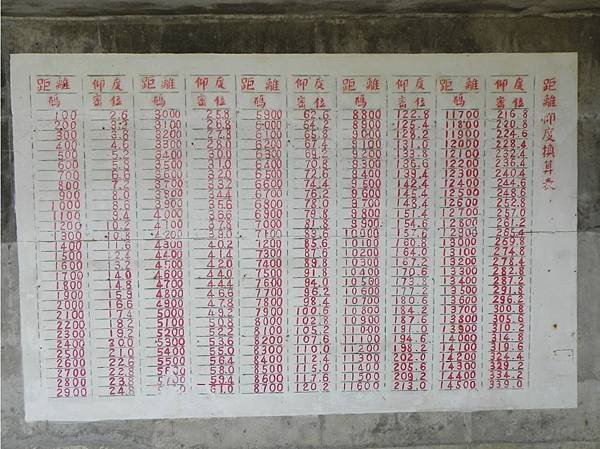 距離 仰度 距離 仰度 距離 仰度 距離 仰度 距離 仰度
碼 密位 碼 密位 碼 密位 碼 密位 碼 密位
100 2.6 3000 25.8 5900 62.6 8800 122.8 11700 216.8
200 3100 26.8 6000 64.2 8900 11800 220.8
300 3200 6100 9000 11900 224.6
400 4.6 3300 6200 67.6 9100 12000 228.4
500 3400 6300 9200 133.8 12100 232.4
600 3500 6400 9300 136.6 12200 236.4
700 6.6 3600 6500 9400 139.4 12300 240.4
800 7.2 3700 6600 74.4 9500 142.4 12400 244.6
900 8.0 3800 6700 9600 145.4 12500 248.8
1000 8.6 3900 35.6 6800 78.0 9700 148.4 12600 252.8
1100 9.4 4000 36.6 6900 79.8 9800 151.4 12700 257.0
1200 10.2 4100 37.8 7000 81.8 9900 154.6 12800 261.2
1300 10.8 4200 7100 83.6 12900 265.4
1400 11.6 4300 40.2 7200 85.6 10100 160.8 13000 269.8
1500 12.4 4400 41.4 7300 87.6 10200 164.0 13100 274.8
1600 4500 7400 89.8 10300 167.2 13200 278.4
1700 14.0 4600 44.0 7500 91.8 10400 170.6 13300 282.8
1800 14.8 4700 44.4 7600 94.0 10500 173.8 13400 287.2
1900 4800 46.6 7700 96.2 10600 177.2 13500 291.8
2000 16.6 4900 47.8 7800 98.4 10700 180.6 13600 296.2
2100 17.4 5000 49.2 7900 100.6 10800 184.2 13700 300.8
2200 18.2 5100 8000 102.8 10900 187.6 13800 305.6
2300 5200 52.2 8100 105.2 11000 191.0 13900 310.2
2400 20.0 5300 53.6 8200 107.6 11100 194.6 14000 314.8
2500 21.0 5400 55.0 8300 110.0 11200 198.2 14100 319.6
2600 5500 56.4 8400 112.4 11300 202.0 14200 324.4
2700 22.8 5600 58.0 8500 115.0 11400 205.6 14300 329.2
2800 23.8 59.4 8600 117.6 11500 209.4 14400 334.2
2900 24.8 61.0 8700 120.2 11600 213.0 14500 339.0
距離仰度換算表